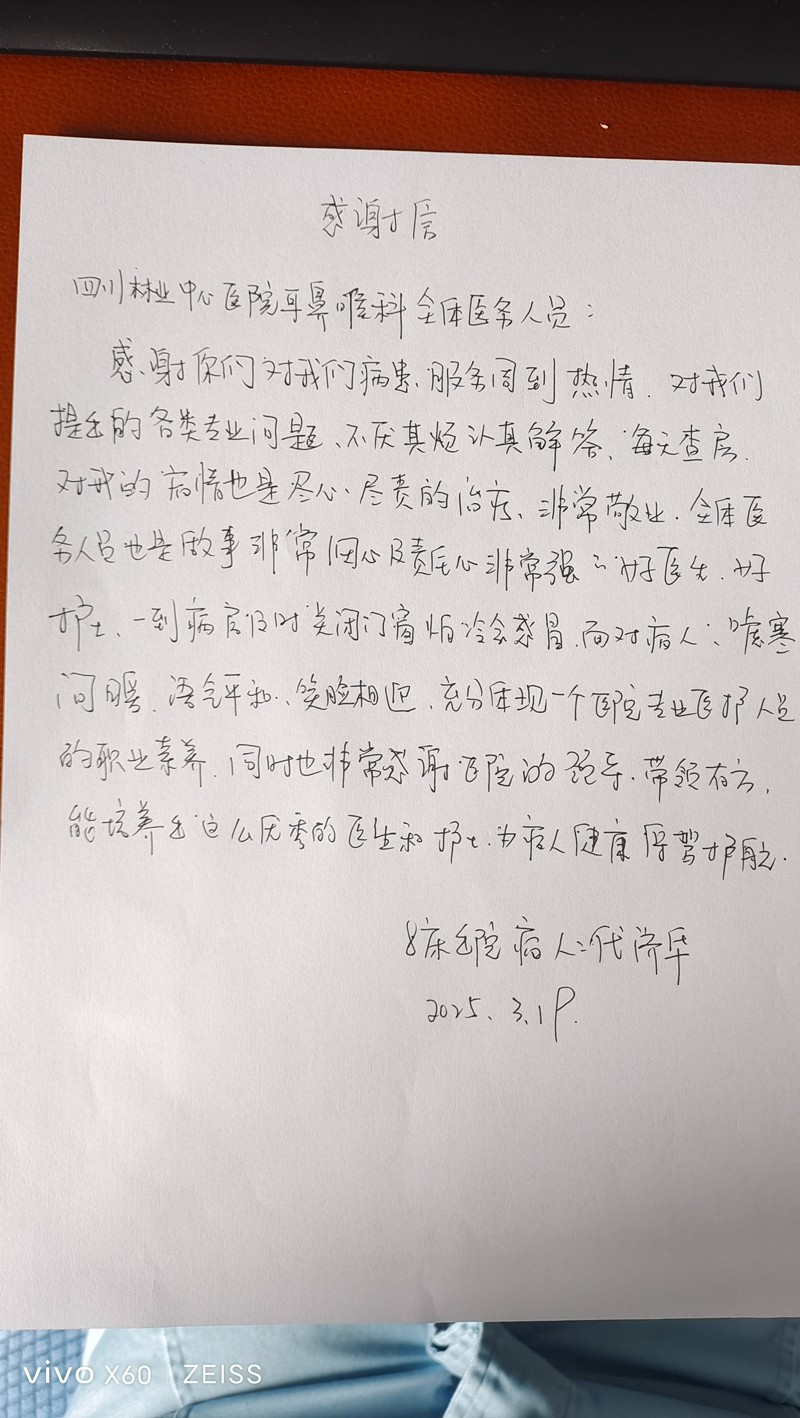 感谢信
四川林业中心医院耳鼻喉科全体医务人员：
感谢你们对我们病患、服务周到热情、对我们
提出的各类专业问题、不厌其烦认真解答、每天查房、
对我的病情也是尽心、尽责的治疗、非常敬业、全体医
务人员也是做事非常细心及责任心非常强的好医生、好
护士、一到病房及时关闭门窗怕冷会感冒、面对病人、嘘寒
问暖、语气平和、笑脸相迎、充分体现一个医院专业医护人员
的职业素养、同时也非常感谢医院的领导、带领有方，
能培养出这么优秀的医生和护士、为病人健康保驾护航.
8床出院病人：代济华
2025、3.19.
vivo X60 | ZEISS